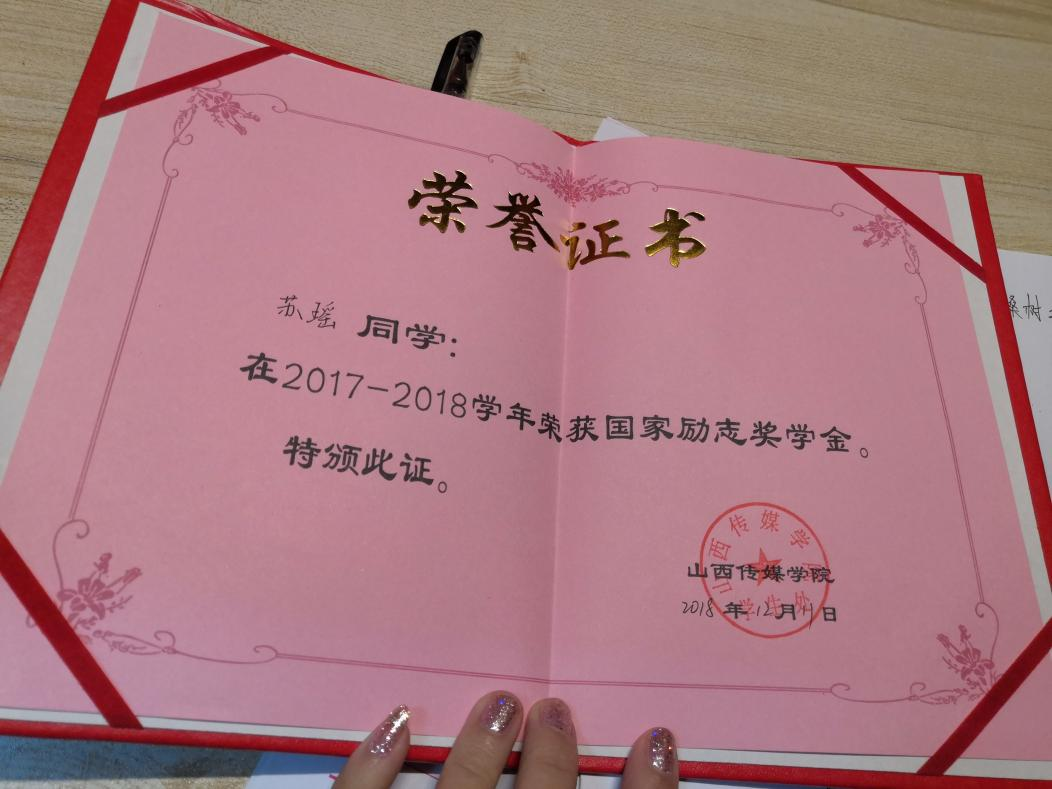 荣誉证书
苏瑶 同学：
在2017-2018学年荣获国家励志奖学金。
特颁此证。
山西传媒学院
学生处
山西传媒学院
2018年12月11日
桑树